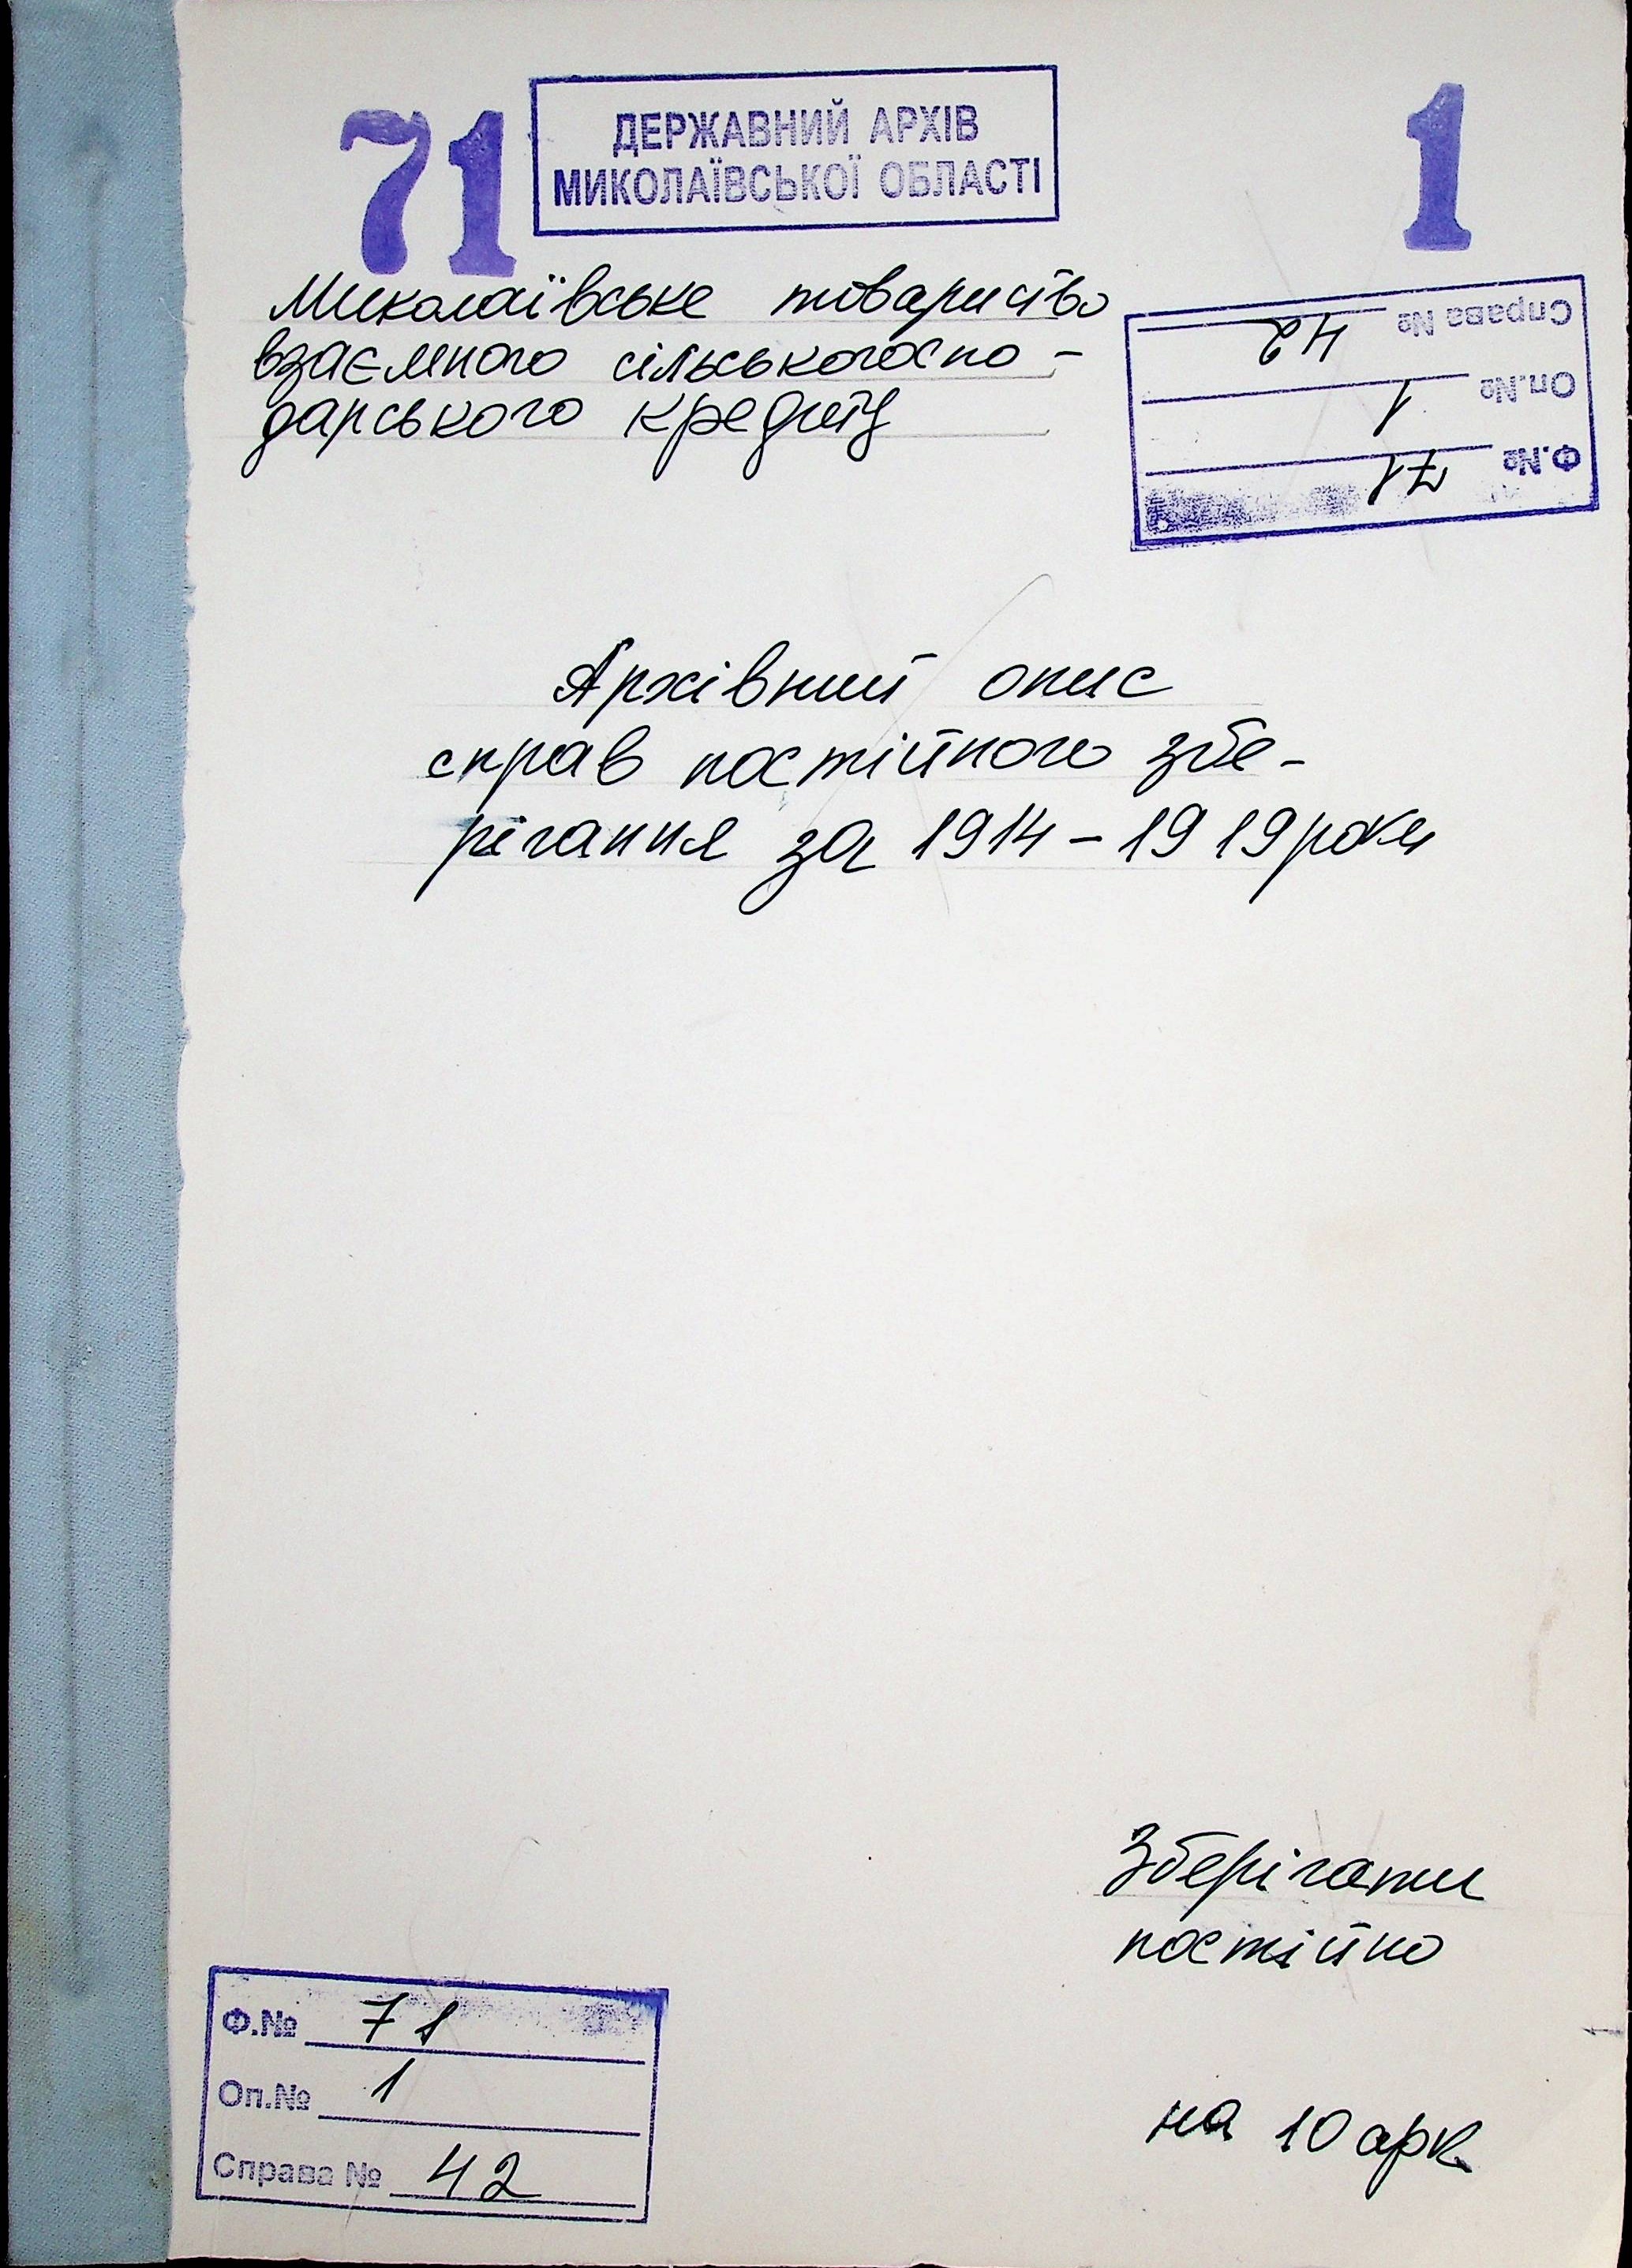 71
ДЕРЖАВНИЙ АРХІВ
МИКОЛАЇВСЬКОЇ ОБЛАСТІ
1
Миколаївське товариство
взаємного сільськогоспо-
дарського кредиту
Ф.№ 71
Оп.№ 1
Справа № 42
Архівний опис
справ постійного збе-
рігання за 1914-1919 роки
Зберігати
постійно
Ф.№ 71
Оп.№ 1
Справа № 42
на 10 арк.